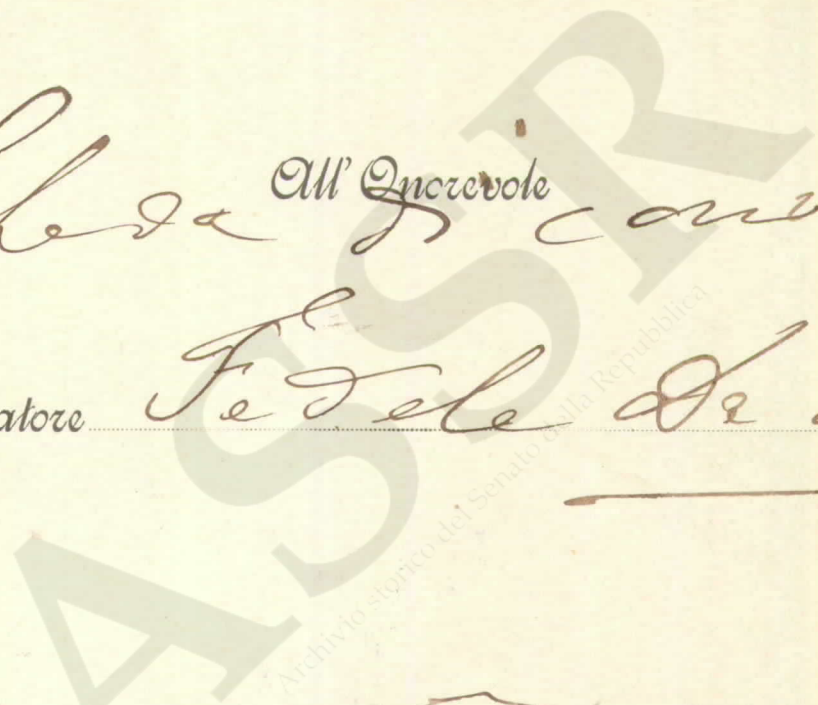 All' Onorevole
di
atore Fedele De
ASSR
Archivio storico del Senato della Repubblica